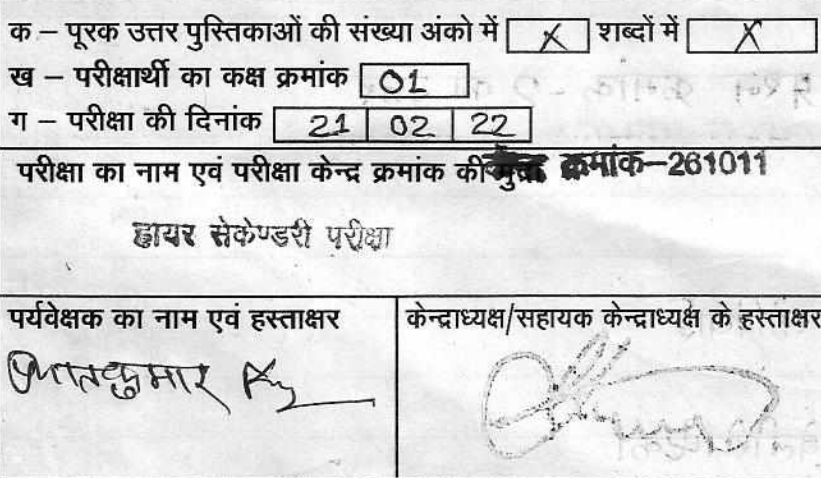 क – पूरक उत्तर पुस्तिकाओं की संख्या अंको में X शब्दों में X
ख – परीक्षार्थी का कक्ष क्रमांक 01
ग – परीक्षा की दिनांक 21 02 22
परीक्षा का नाम एवं परीक्षा केन्द्र क्रमांक की मुद्रा क्रमांक–261011
हायर सेकेण्डरी परीक्षा
पर्यवेक्षक का नाम एवं हस्ताक्षर केन्द्राध्यक्ष/सहायक केन्द्राध्यक्ष के हस्ताक्षर